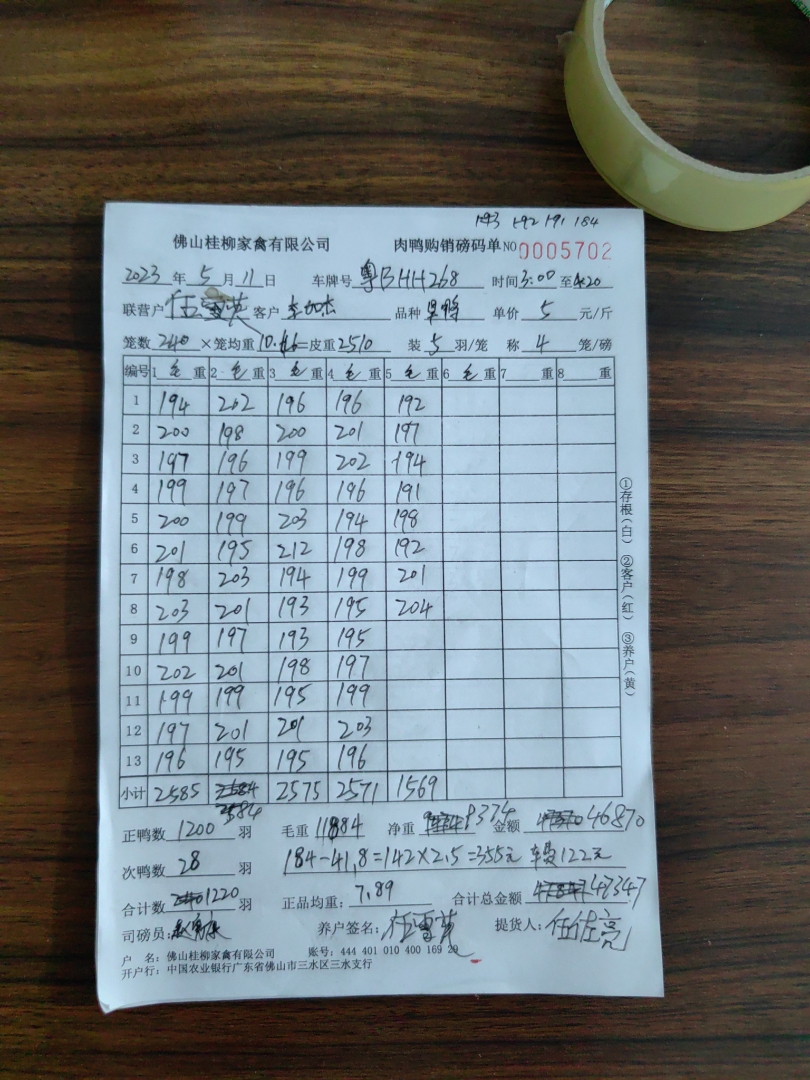 193 192 191 184
佛山桂柳家禽有限公司 肉鸭购销磅码单 NO 0005702
2023 年 5 月 11 日 车牌号 粤BHH268 时间 3:00 至 4:20
联营户 任雪英 客户 品种 单价 5 元/斤
笼数 240 ×笼均重 10.46 =皮重 2510 装 5 羽/笼 称 4 笼/磅
编号 1 毛 重 2 毛 重 3 毛 重 4 毛 重 5 毛 重 6 毛 重 7 重 8 重
1 194 202 196 196 192
2 200 198 200 201 197
3 197 196 199 202 194
4 199 197 196 196 191
5 200 199 203 194 198
6 201 195 212 198 192
7 198 203 194 199 201
8 203 201 193 195 204
9 199 197 193 195
10 202 201 198 197
11 199 199 195 199
12 197 201 201 203
13 196 195 195 196
小计 2585 2584 2575 2571 1569
正鸭数 1200 羽 毛重 11884 净重 9374 金额 46870
次鸭数 28 羽 184-41.8=142×2.5=355元 122元
合计数 1220 羽 正品均重: 7.89 合计总金额 47347
司磅员: 养户签名: 任雪英 提货人:
户 名: 佛山桂柳家禽有限公司 账号: 444 401 010 400 169 29
开户行: 中国农业银行广东省佛山市三水区三水支行
①存根(白) ②客户(红) ③养户(黄)